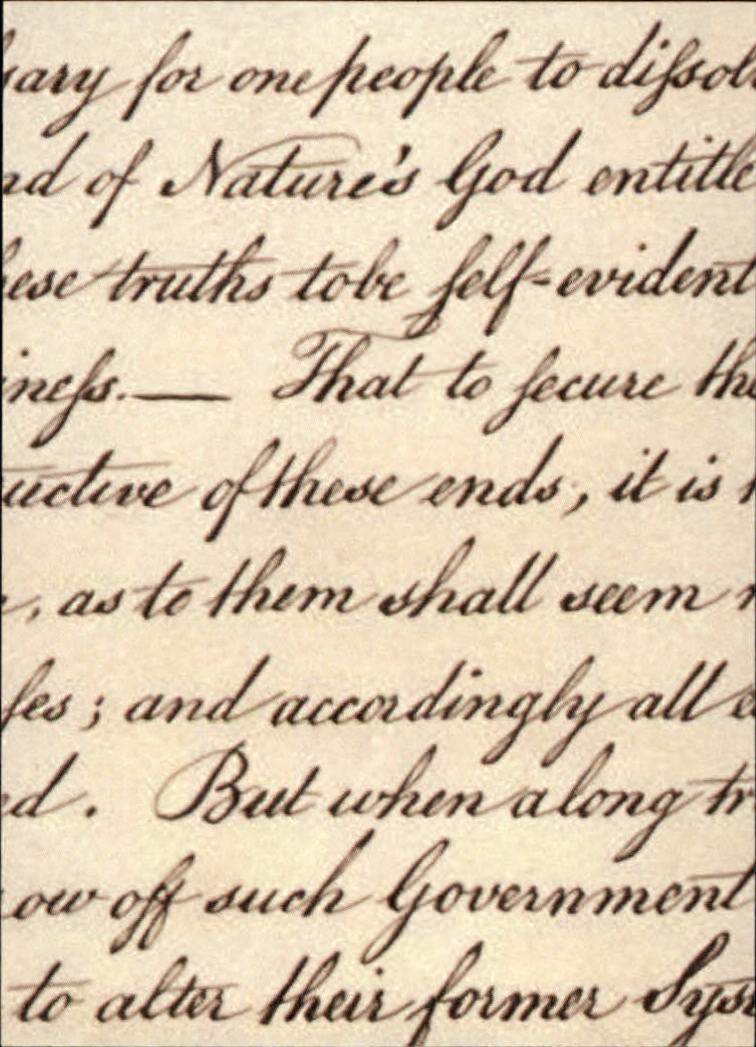 sary for one people to dissol
nd of Nature's God entitle
hese truths to be self-evident
iness.— That to secure the
uctive of these ends, it is
, as to them shall seem
ses; and accordingly all e
ed. But when a long tr
ow off such Government
to alter their former Sys